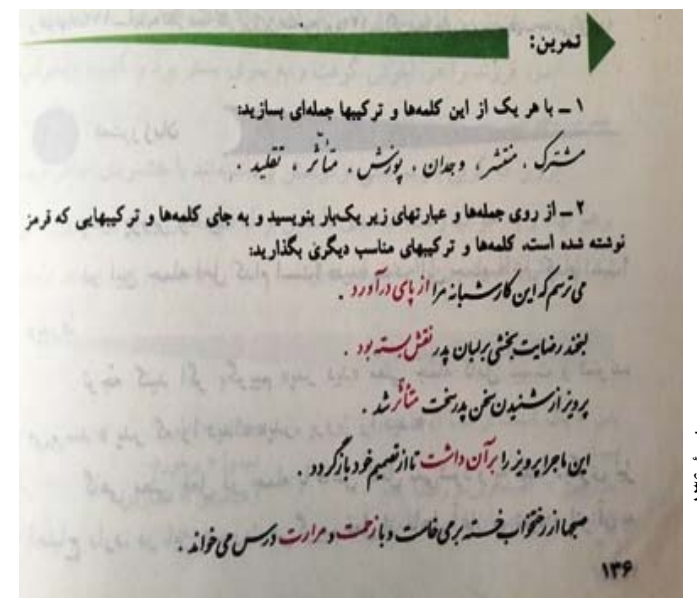 تمرین:
۱ – با هر یک از این کلمه‌ها و ترکیبها جمله‌ای بسازید:
مشترک، منتشر، وجدان، پوزش، متأثّر، تقلید.
۲ – از روی جمله‌ها و عبارتهای زیر یک‌بار بنویسید و به جای کلمه‌ها و ترکیبهایی که قرمز
نوشته شده است، کلمه‌ها و ترکیبهای مناسب دیگری بگذارید:
می‌ترسم که این کار شبانه مرا از پای درآورد.
لبخند رضایت‌بخشی بر لبان پدر نقش بسته بود.
پرویز از شنیدن سخن پدر سخت متأثّر شد.
این ماجرا پرویز را برآن داشت تا از تصمیم خود بازگردد.
صبحها از رختخواب خسته برمی‌خاست و با زحمت و مرارت درس می‌خواند.
۱۳۶